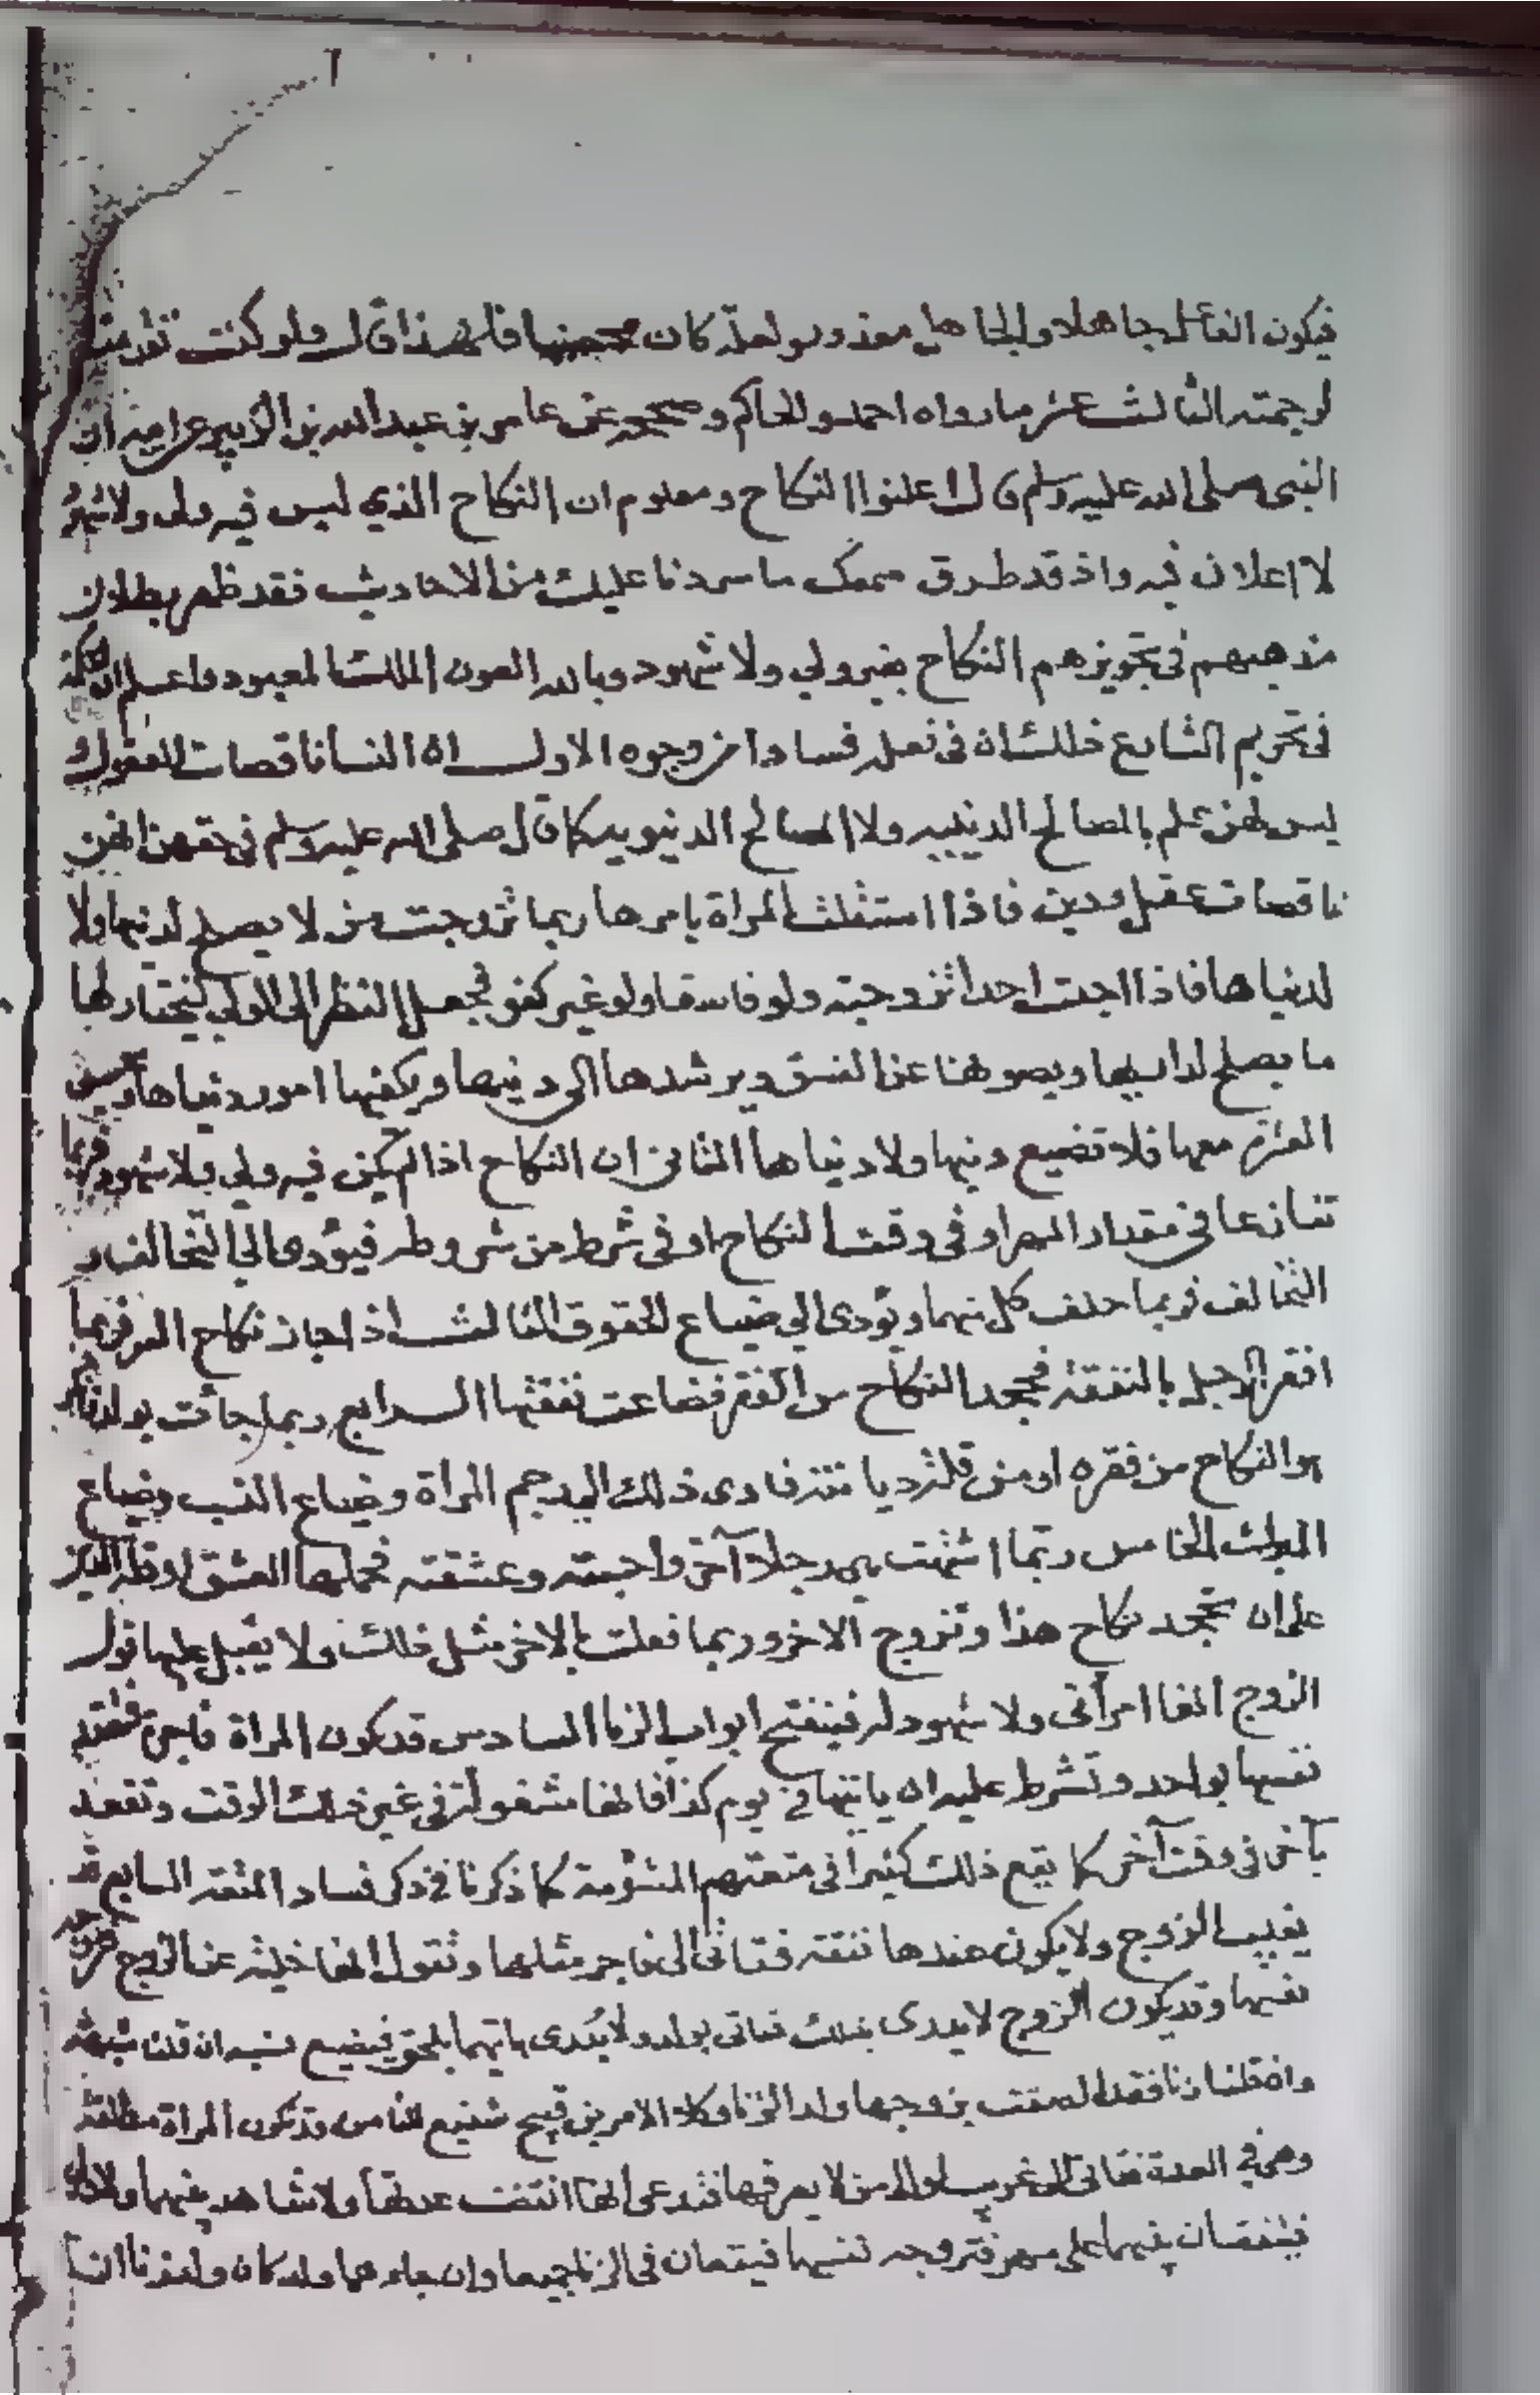 فيكون الفاعل جاهلا والجاهل معذور ولعله كان محصنا فلهذا قال ولو كنت تقدمت
لرجمته الثالث عشر ما رواه احمد والحاكم وصححه عن عامر بن عبد الله بن الزبير عن ابيه ان
النبي صلى الله عليه وسلم قال اعلنوا النكاح ومعلوم ان النكاح الذي ليس فيه ولي ولا شهود
لا اعلان فيه واذ قد طرق سمعك ما سردنا عليك من الاحاديث فقد ظهر بطلان
مذهبهم في تجويزهم النكاح بغير ولي ولا شهود وبالله العون الملك المعبود واعلم ان الحكمة
في تحريم الشارع ذلك ان في فعله فسادا من وجوه الاول ان النسا ناقصات العقول و
ليس لهن علم بالمصالح الدينيه ولا المصالح الدنيويه كما قال صلى الله عليه وسلم في حقهن انهن
ناقصات عقل ودين فاذا استقلت المراة بامرها ربما تزوجت من لا يصلح لدينها ولا
لدنياها فاذا احبت احدا تزوجته ولو فاسقا ولو غير كفو فجعل النظر الى الولي ليختار لها
ما يصلح لدا بها ويصونها عن الفسق ويرشدها الى دينها ويكفيها امور دنياها ويحسن
العشرة معها فلا تضيع دينها ولا دنياها الثاني ان النكاح اذا لم يكن فيه ولي ولا شهود فربما
تنازعا في مقدار المهر او في وقت النكاح او في شرط من شروطه فيؤدي الى التخالف او
التحالف فربما حلف كل منهما ويؤدى الى ضياع الحقوق الثالث اذا جاز نكاح السر فربما
افقر الرجل بالنفقة فجحد النكاح من الفقر فضاعت نفقتها الرابع ربما جائت بولد فانكر
هو النكاح من فقره او من قلة ديانته فادى ذلك الى رجم المراة وضياع النسب وضياع
الميراث الخامس ربما اشتهت هي رجلا آخر واحبته وعشقته فحملها العشق او قلة الدين
على ان تجحد نكاح هذا وتزوج الاخر وربما فعلت بالاخر مثل ذلك ولا يقبل عليها قول
الزوج انها امرأتي ولا شهود له فينفتح ابواب الزنا السادس قد تكون المراة فاجرة فتعقد
نفسها بواحد وتشرط عليه ان ياتيها في يوم كذا فانها مشغولة في غير ذلك الوقت وتعقد
بآخر في وقت آخر كما يقع ذلك كثيرا في متعتهم المشؤمة كما ذكرنا في ذكر فساد المتعة السابع قد
يغيب الزوج ولا يكون عندها نفقة فتاتي الى فاجر مثلها وتقول انها خلية عن الزوج فتزوجه
نفسها وقد يكون الزوج لا يدرى بذلك فتاتي بولد ولا يدرى بايهما يلحق فيضيع نسبه ان قلنا شبهة
وان قلنا زنا فقد الصقت بزوجها ولد الزنا وكلا الامرين قبيح شنيع الثامن وقد تكون المراة مطلقة
وهي في العدة فتاتي الى غريب او الى من لا يعرفها فتدعى انها انقضت عدتها ولا شاهد بينهما ولا ولي
فيتفقان بينهما على مهر فتزوجه نفسها فيقعان في الزنا جميعا وان جاء هما ولد كان ولد زنا ان